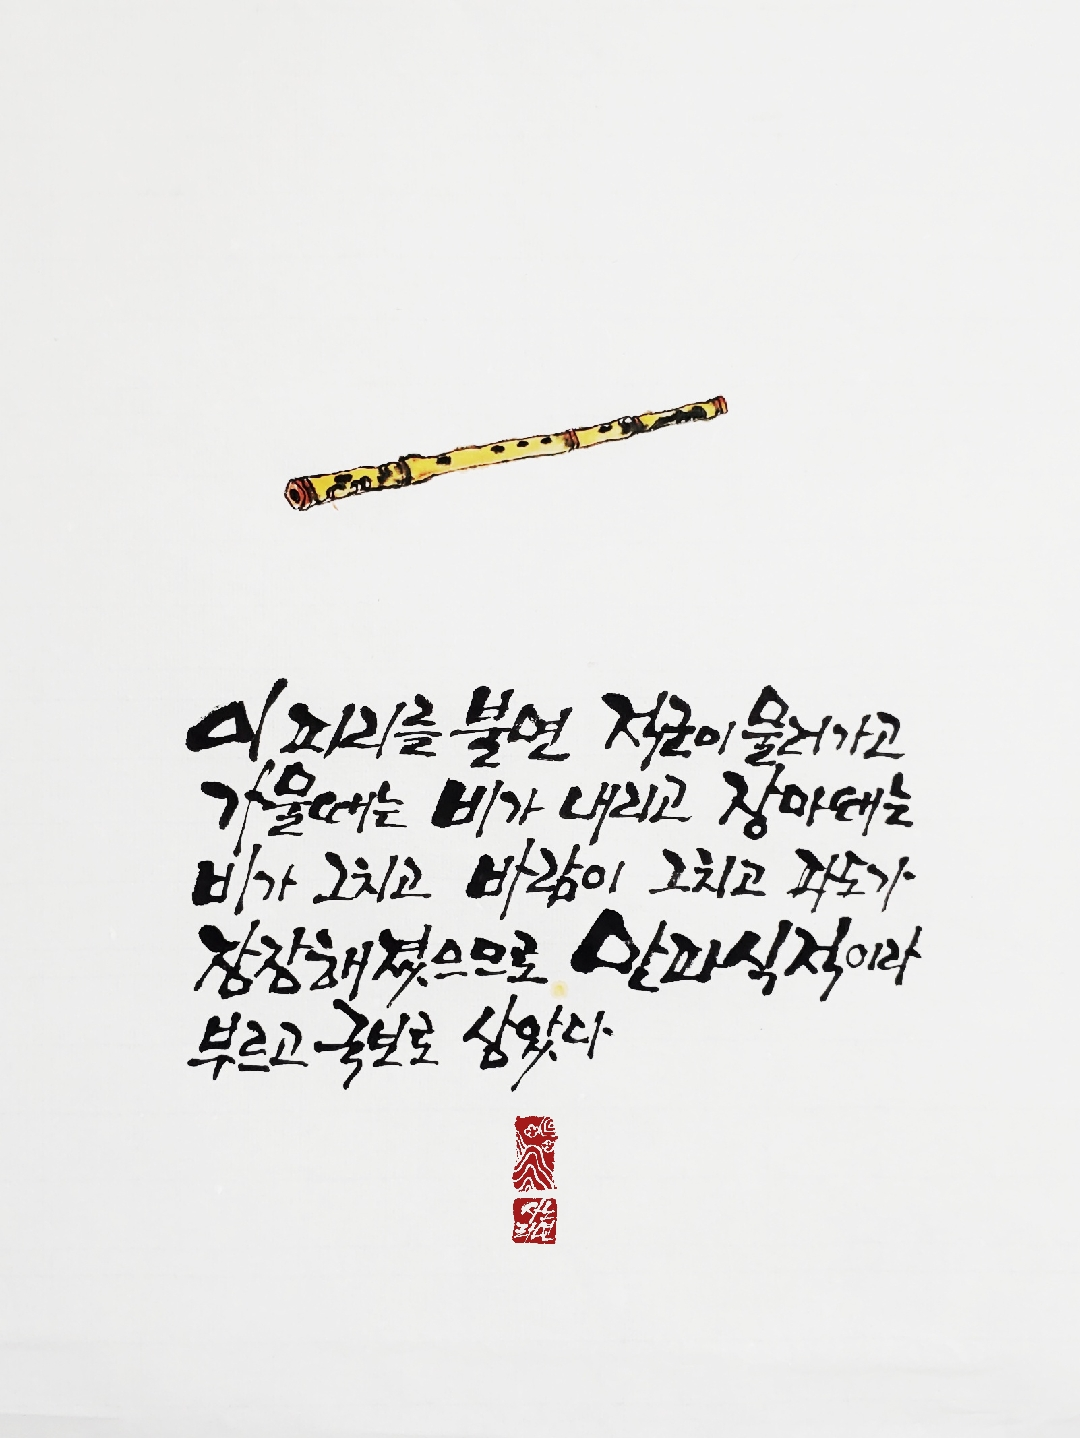 이 피리를 불면 적군이 물러가고
가물때는 비가 내리고 장마때는
비가 그치고 바람이 그치고 파도가
잔잔해졌으므로 만파식적이라
부르고 국보로 삼았다